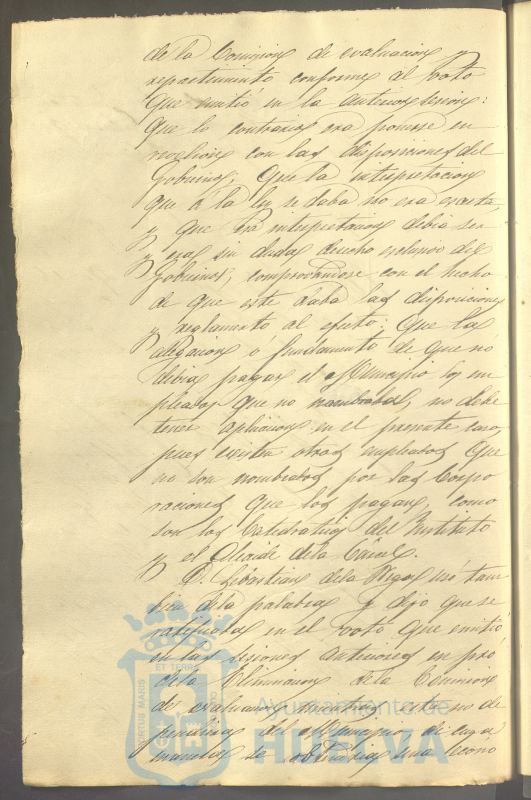 de la Comision de evaluacion y
repartimiento conforme al voto
que emitió en la anterior sesion:
que lo contrario era ponerse en
rebelion con las disposiciones del
Gobierno; Que la interpretacion
que a la ley se daba no era exacta,
y que la interpretacion debia ser
y era sin duda derecho esclusivo del
Gobierno, comprobandose con el hecho
de que este daba las disposiciones
y reglamento al efecto: Que la
alegacion ó fundamento de que no
debia pagar el Municipio los em
pleados que no nombraba, no debe
tener aplicacion en el presente caso,
pues existen otros empleados que
no son nombrados por las Corpo
raciones que los pagan, como
son los Catedraticos del Instituto
y el Alcaide de la Cárcel.
D. Sebastian de la Vega usó tam
bien de la palabra y dijo que se
ratificaba en el voto que emitió
en las sesiones anteriores en pró
de la eliminacion de la Comision
de evaluacion mientras esta no de
pendiera del Municipio, de cuya
manera se obtendria una econo
PORTUS MARIS
ET TERRAE
CUSTODIO
Ayuntamiento de
HUELVA